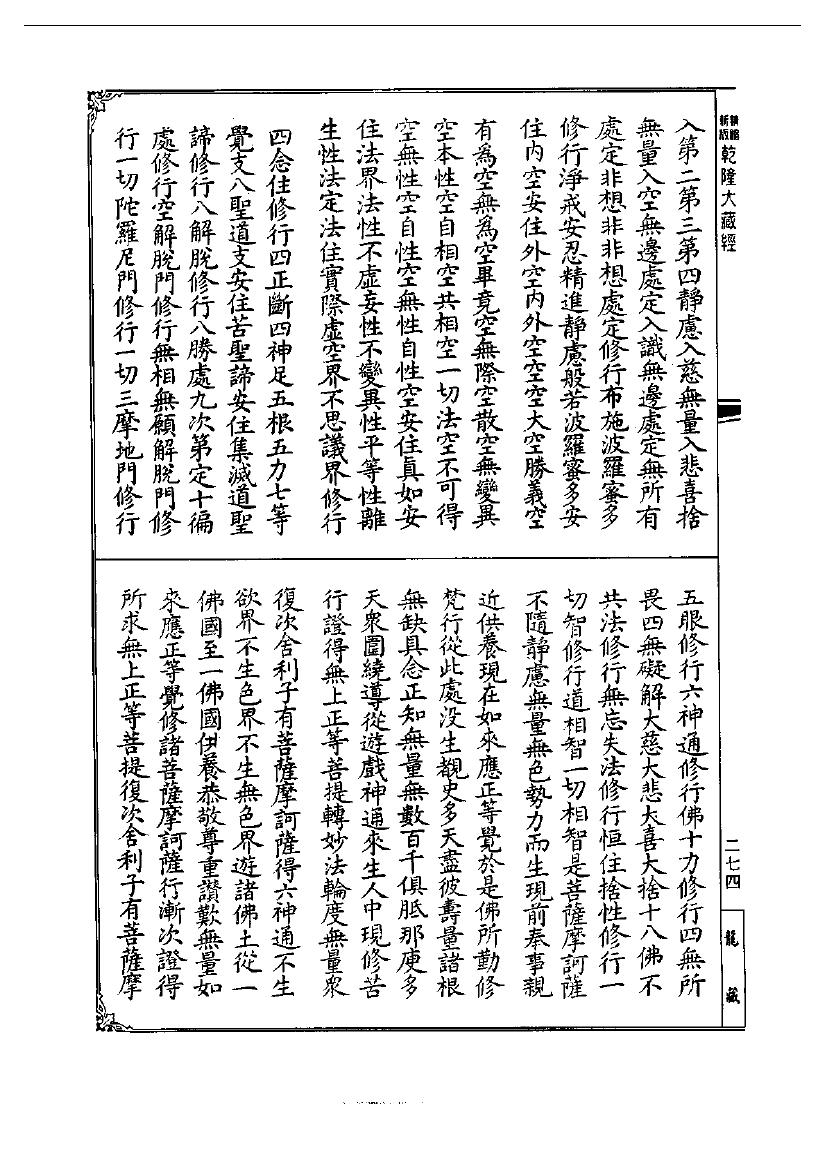 新編縮版
乾隆大藏經
入第二第三第四靜慮入慈無量入悲喜捨
無量入空無邊處定入識無邊處定無所有
處定非想非非想處定修行布施波羅蜜多
修行淨戒安忍精進靜慮般若波羅蜜多安
住內空安住外空內外空空空大空勝義空
有為空無為空畢竟空無際空散空無變異
空本性空自相空共相空一切法空不可得
空無性空自性空無性自性空安住真如安
住法界法性不虛妄性不變異性平等性離
生性法定法住實際虛空界不思議界修行
四念住修行四正斷四神足五根五力七等
覺支八聖道支安住苦聖諦安住集滅道聖
諦修行八解脫修行八勝處九次第定十徧
處修行空解脫門修行無相無願解脫門修
行一切陀羅尼門修行一切三摩地門修行
五眼修行六神通修行佛十力修行四無所
畏四無礙解大慈大悲大喜大捨十八佛不
共法修行無忘失法修行恒住捨性修行一
切智修行道相智一切相智是菩薩摩訶薩
不隨靜慮無量無色勢力而生現前奉事親
近供養現在如來應正等覺於是佛所勤修
梵行從此處没生覩史多天盡彼壽量諸根
無缺具念正知無量無數百千俱胝那庾多
天衆圍繞導從遊戲神通來生人中現修苦
行證得無上正等菩提轉妙法輪度無量衆
復次舍利子有菩薩摩訶薩得六神通不生
欲界不生色界不生無色界遊諸佛土從一
佛國至一佛國供養恭敬尊重讚歎無量如
來應正等覺修諸菩薩摩訶薩行漸次證得
所求無上正等菩提復次舍利子有菩薩摩
二七四
龍藏